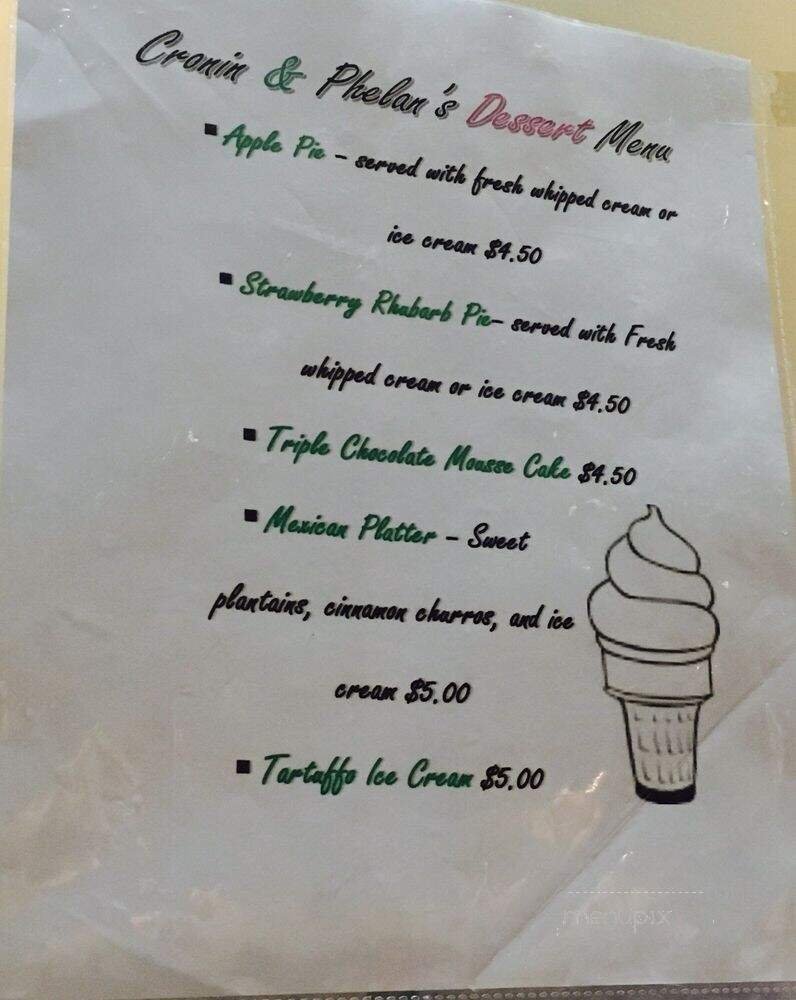 Cronin & Phelan's Dessert Menu
▪ Apple Pie – served with fresh whipped cream or
ice cream $4.50
▪ Strawberry Rhubarb Pie– served with Fresh
whipped cream or ice cream $4.50
▪ Triple Chocolate Mousse Cake $4.50
▪ Mexican Platter – Sweet
plantains, cinnamon churros, and ice
cream $5.00
▪ Tartuffo Ice Cream $5.00
menupix